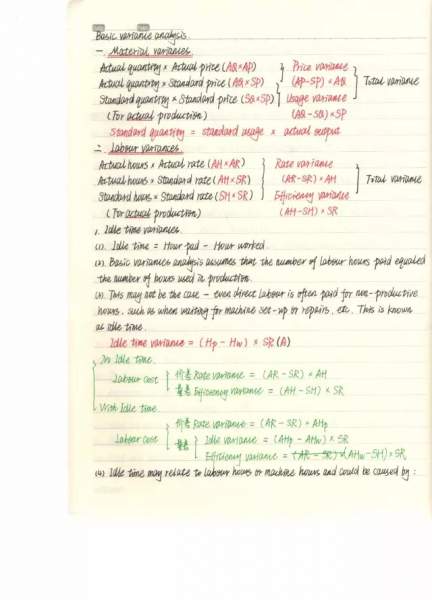 Basic variance analysis.
一. Material variances.
Actual quantity × Actual price (AQ×AP) Price variance
Actual quantity × Standard price (AQ×SP) (AP-SP)×AQ Total variance
Standard quantity × Standard price (SQ×SP) Usage variance
(For actual production) (AQ-SQ)×SP
Standard quantity = standard usage × actual output
二. Labour variances.
Actual hours × Actual rate (AH×AR) Rate variance
Actual hours × Standard rate (AH×SR) (AR-SR)×AH Total variance
Standard hours × Standard rate (SH×SR) Efficiency variance
(For actual production) (AH-SH)×SR
1. Idle time variances.
(1). Idle time = Hour paid - Hour worked.
(2). Basic variances analysis assumes that the number of labour hours paid equaled
the number of hours used in production.
(3). This may not be the case - even direct labour is often paid for non-productive
hours, such as when waiting for machine set-up or repairs, etc. This is known
as idle time.
Idle time variance = (Hp - Hw) × SR (A)
No Idle time.
Labour cost 价差 Rate variance = (AR - SR) × AH
量差 Efficiency variance = (AH - SH) × SR
With Idle time.
价差 Rate variance = (AR - SR) × AHp
Labour cost 量差 Idle variance = (AHp - AHw) × SR
Efficiency variance = (AR - SR) × (AHw - SH) × SR
(4). Idle time may relate to labour hours or machine hours and could be caused by :